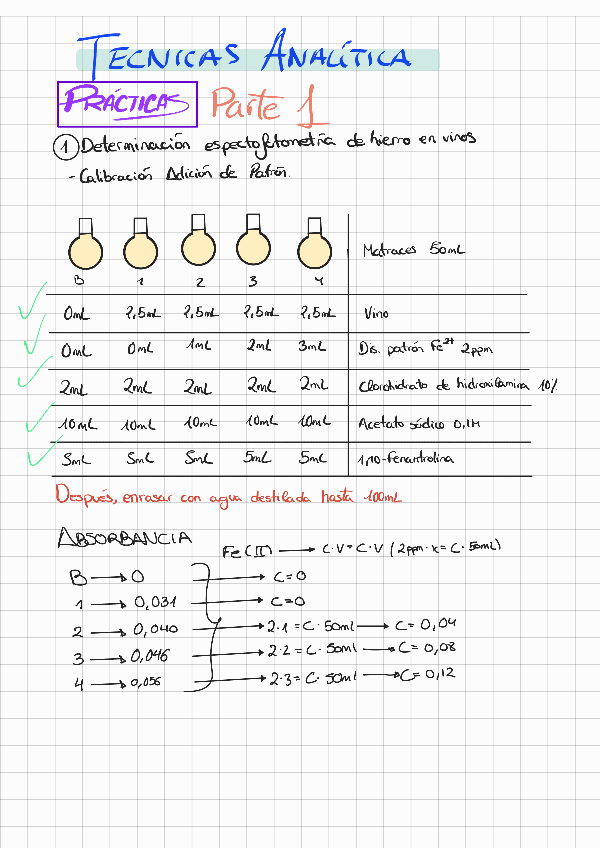 TECNICAS ANALÍTICA
PRÁCTICAS Parte 1
1 Determinación espectofotometría de hierro en vinos
- Calibración Adición de Patrón.
Matraces 50mL
B 1 2 3 4
0mL 2,5mL 2,5mL 2,5mL 2,5mL Vino
0mL 0mL 1mL 2mL 3mL Dis. patrón Fe2+ 2ppm
2mL 2mL 2mL 2mL 2mL Clorohidrato de hidroxilamina 10%
10mL 10mL 10mL 10mL 10mL Acetato sódico 0,1M
5mL 5mL 5mL 5mL 5mL 1,10-Fenantrolina
Después, enrasar con agua destilada hasta 100mL
ABSORBANCIA
Fe(II) → C·V = C·V (2ppm·x = C·50mL)
B → 0 → C=0
1 → 0,031 → C=0
2 → 0,040 → 2·1 = C·50ml → C= 0,04
3 → 0,046 → 2·2 = C·50ml → C= 0,08
4 → 0,056 → 2·3 = C·50ml → C= 0,12